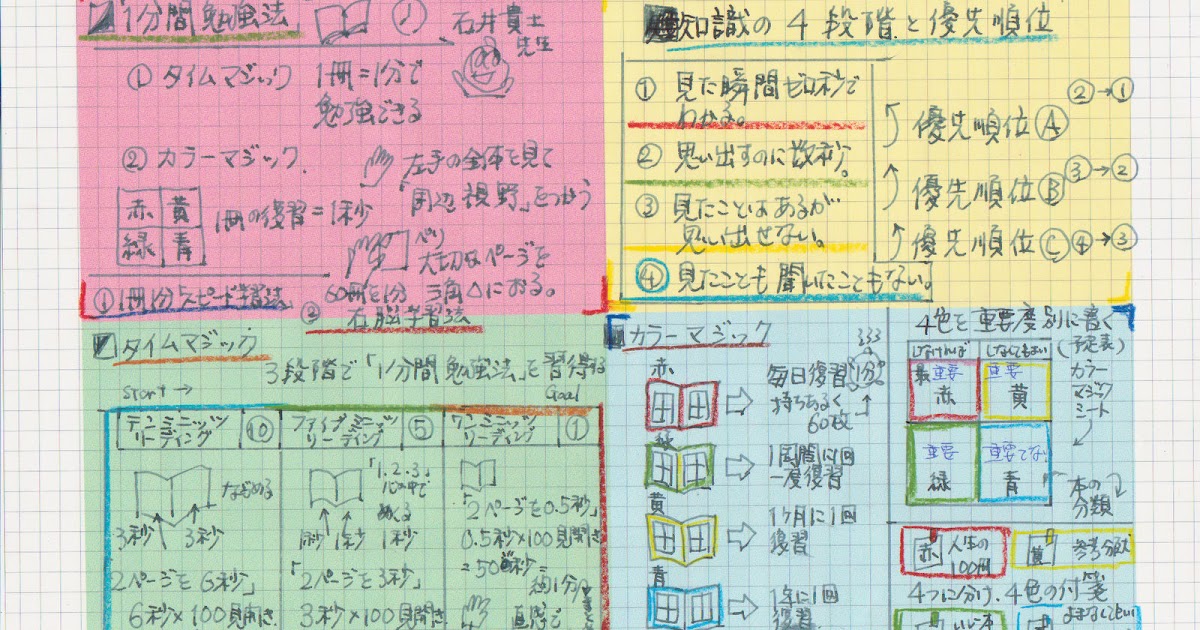 1分間勉強法
石井貴士
先生
① タイムマジック
1冊=1分で
勉強できる
② カラーマジック
左手の全体を見て
「周辺視野」をつかう
赤 黄
緑 青
1冊の復習=1秒
ペリ
大切なページを
三角△におる。
60冊を1分
① 1冊1分スピード学習法
② 右脳学習法
知識の4段階と優先順位
① 見た瞬間ゼロ秒で
わかる。
② 思い出すのに数秒。
③ 見たことはあるが
思い出せない。
④ 見たことも聞いたこともない。
②→①
優先順位Ⓐ
③→②
優先順位Ⓑ
優先順位Ⓒ ④→③
タイムマジック
3段階で「1分間勉強法」を習得する
Start →
Goal
テンミニッツ
リーディング
⑩
ファイブミニッツ
リーディング
⑤
ワンミニッツ
リーディング
①
ながめる
3秒 3秒
「2ページを6秒」
6秒×100見開き
「1.2.3」
心の中で
めくる
1秒 1秒 1秒
「2ページを3秒」
3秒×100見開き
「2ページを0.5秒」
0.5秒×100見開き
=50秒=
約1分
直感で
カラーマジック
赤
毎日復習 1分
持ちあるく
60枚
緑
1週間に1回
一度復習
黄
1ヶ月に1回
復習
青
1年に1回
復習
4色を重要度別に書く
(予定表)
しなければ しなくてもよい
最重要
赤
重要
黄
重要
緑
重要でない
青
カラー
マジック
シート
本の
分類
赤 人生の
100冊
黄 参考文献
4つに分け、4色の付箋